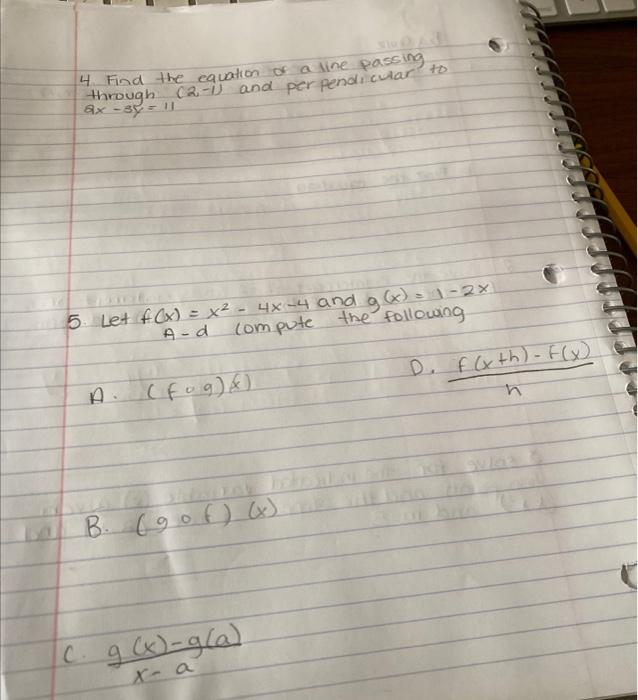 4. Find the equation of a line passing
through (2,-1) and perpendicular to
2x - 3y = 11
5. Let f(x) = x² - 4x - 4 and g(x) = 1 - 2x
A-d compute the following
A. (f o g)(x)
D. f(x+h) - f(x)
h
B. (g o f) (x)
C. g(x) - g(a)
x - a